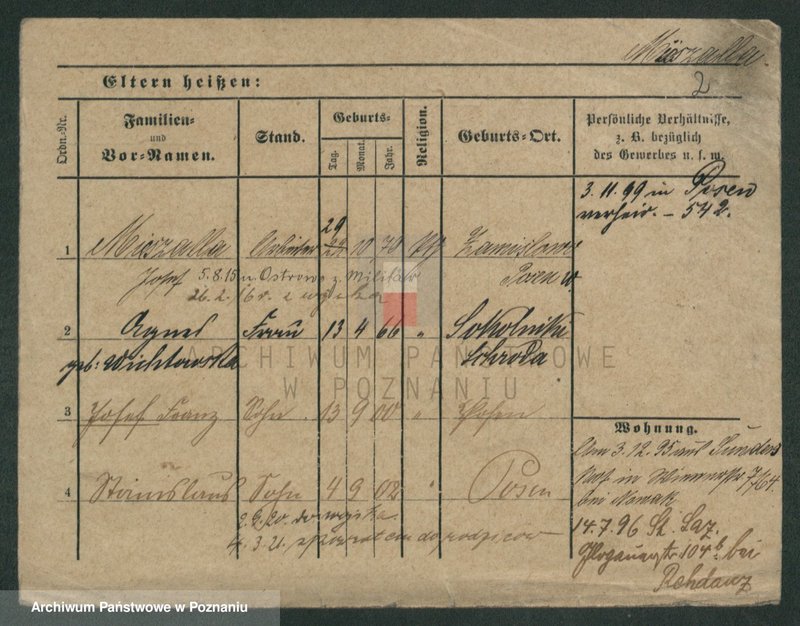 Miszalla.
2
Eltern heißen:
Ordn.-Nr.
Familien-
und
Vor-Namen.
Stand.
Geburts-
Tag.
Monat.
Jahr.
Religion.
Geburts-Ort.
Persönliche Verhältnisse,
z. B. bezüglich
des Gewerbes u. s. w.
3.11.99 in Posen
verheir. – 542.
29
1 Miszalla Arbeiter 29 10 70 Zaniślow
Josef 5.8.15 n. Ostrowo z. Militär Posen W.
26.2.16 v.
2 Agnes Frau 13 4 66 " Sokolniki
geb: Wichtowska Schroda
ARCHIWUM PAŃSTWOWE
W POZNANIU
3 Josef Franz Sohn 13 9 00 " Posen
Wohnung.
Am 3.12.95 aus
in 7/64
bei Nowak
4 Stanislaus Sohn 4 9 02 " Posen
2.9.20. do wojska
4.3.21. z powrotem do rodziców
14.7.96 St. Laz.
Glogauerstr 104b bei
Rehdanz
Archiwum Państwowe w Poznaniu